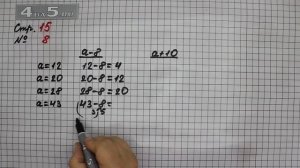 Стр. 15
№ 8
a-8 a+10
a=12 12-8=4
a=20 20-8=12
a=28 28-8=20
a=43 43-8=
3 5